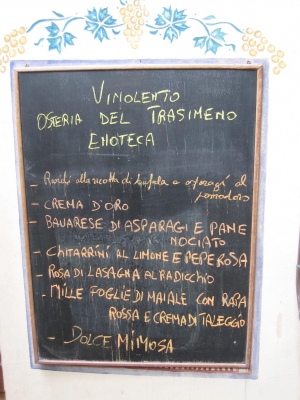 VINOLENTO
OSTERIA DEL TRASIMENO
ENOTECA
- Ravioli alla ricotta di bufala e asparagi al
pomodoro
- CREMA D'ORO
- BAVARESE DI ASPARAGI E PANE
NOCIATO
- CHITARRINI AL LIMONE E PEPE ROSA
- ROSA DI LASAGNA AL RADICCHIO
- MILLE FOGLIE DI MAIALE CON RAPA
ROSSA E CREMA DI TALEGGIO
- DOLCE MIMOSA